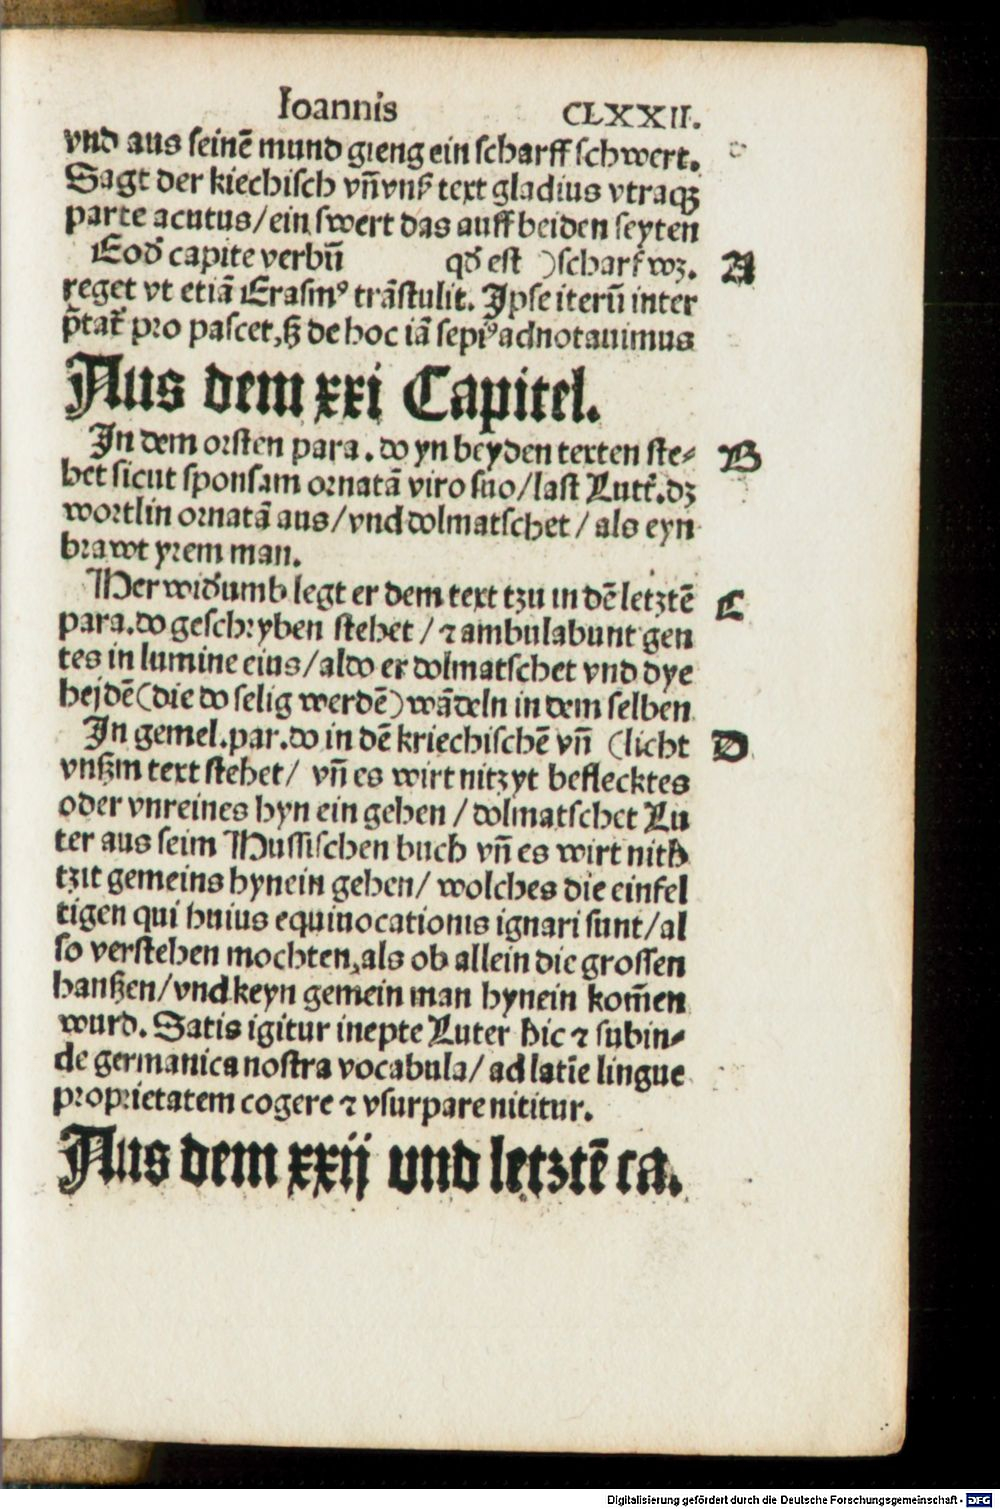 Ioannis CLXXII.
vnd aus seinē mund gieng ein scharff schwert.
Sagt der kiechisch vn̄ vnß text gladius vtraqꝫ
parte acutus/ein swert das auff beiden seyten
Eod̄ capite verbū qd̄ est )scharf wz. A
reget vt etiā Erasmꝰ trāstulit. Ipse iterū inter
p̄tat̄ pro pascet, sꝫ de hoc iā sepiꝰ adnotauimus
Aus dem xxi Capitel.
In dem orsten para. do yn beyden texten ste⸗ B
het sicut sponsam ornatā viro suo/last Lutt̄. dz
wortlin ornatā aus/vnd dolmatschet/als eyn
brawt yrem man.
Herwid̄umb legt er dem text tzu in dē letztē C
para. do geschryben stehet/⁊ ambulabunt gen
tes in lumine eius/aldo er dolmatschet vnd dye
hejdē(die do selig werdē)wādeln in dem selben
In gemel. par. do in dē kriechischē vn̄ (licht D
vnßm text stehet/ vn̄ es wirt nitzyt beflecktes
oder vnreines hyn ein gehen/dolmatschet Lu
ter aus seim Hussischen buch vn̄ es wirt nith
tzit gemeins hynein gehen/ wolches die einfel
tigen qui huius equiuocationis ignari sunt/al
so verstehen mochten, als ob allein die grossen
hanßen/vnd keyn gemein man hynein kom̄en
wurd. Satis igitur inepte Luter hic ⁊ subin⸗
de germanica nostra vocabula/ad latīe lingue
proprietatem cogere ⁊ vsurpare nititur.
Aus dem xxij vnd letztē ca.
Digitalisierung gefördert durch die Deutsche Forschungsgemeinschaft - DFG